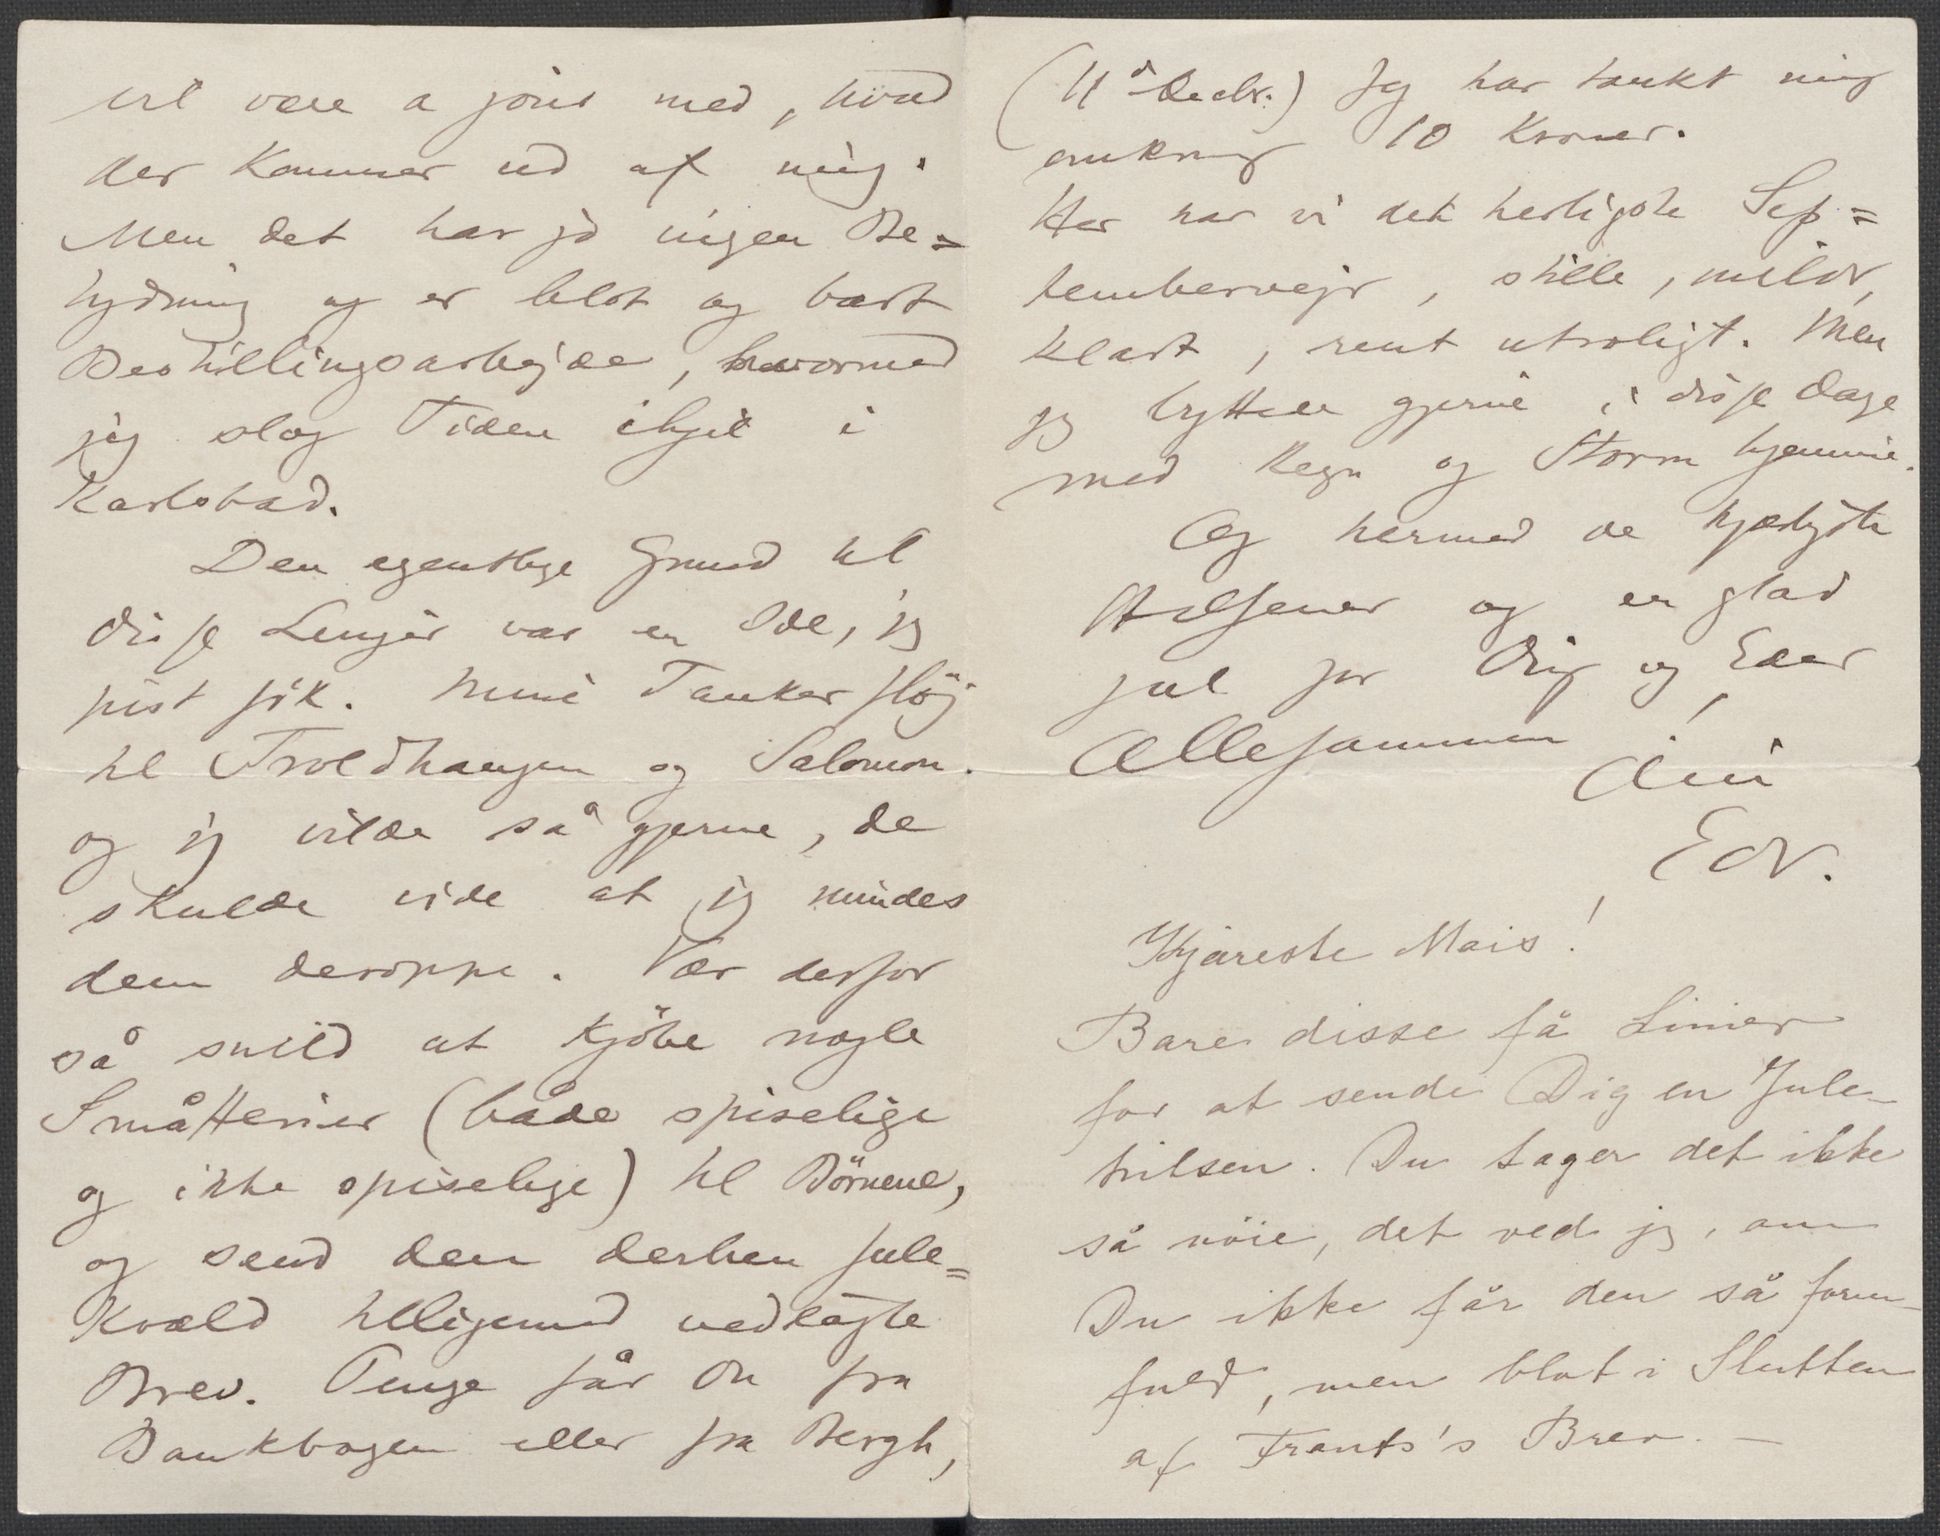 vil være a jour med, hvad
der kommer ud af mig.
Men det har jo ingen Be=
tydning og er blot og bart
Bestillingsarbejde, hvormed
jeg slog Tiden ihjel i
Karlsbad.
Den egentlige Grund til
disse Linjer var en Ide, jeg
just fik. Mine Tanker fløj
til Troldhaugen og Salomon.
og jeg vilde så gjerne, de
skulde vide at jeg mindes
dem deroppe. Vær derfor
så snild at kjöbe nogle
Småtterier (både spiselige
og ikke spiselige) til Börnene,
og send dem derhen Jule=
kvæld tilligemed vedlagte
Brev. Penge får Du fra
Bankbogen eller fra Bergh,
(11 Decbr.) Jeg har tænkt mig
omkring 10 Kroner.
Her har vi det herligste Sep=
tembervejr, stille, mildt,
klart, rent utroligt. Men
jeg byttede gjerne i disse Dage
med Regn og Storm hjemme.
Og hermed de hjerteligste
Hilsener og en glad
Jul for Dig og Eder
Allesammen
Din
Edv.
Kjæreste Mais!
Bare disse få Linier
for at sende Dig en Jule-
hilsen. Du tager det ikke
så nöie, det ved jeg, om
Du ikke får den så form-
fuld, men blot i Slutten
af Frants's Brev. —